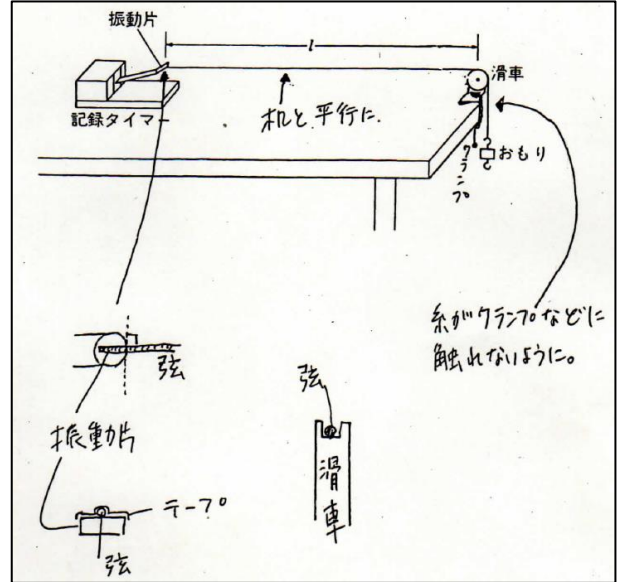 振動片
l
滑車
記録タイマー
机と平行に
おもり
クランプ
糸がクランプなどに
触れないように。
弦
振動片
テープ
弦
弦
滑車